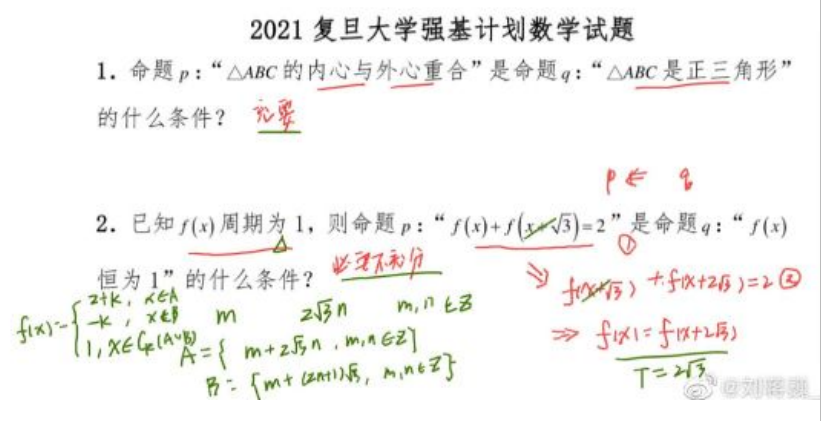 2021 复旦大学强基计划数学试题
1. 命题 p：“△ABC 的内心与外心重合”是命题 q：“△ABC 是正三角形”
的什么条件？ 充要
p ⇐ q
2. 已知 f(x) 周期为 1，则命题 p：“ f(x)+f(x+√3)=2 ”是命题 q：“ f(x)
①
恒为 1”的什么条件？ 必要不充分
⇒ f(x+√3) + f(x+2√3)=2 ②
f(x)= { 2+k, x∈A
-k, x∈B
1, x∈C_R(A∪B)
m 2√3n m,n∈Z
⇒ f(x)=f(x+2√3)
A={ m+2√3n , m,n∈Z}
T=2√3
B={m+(2n+1)√3, m,n∈Z}
@刘蒋巍